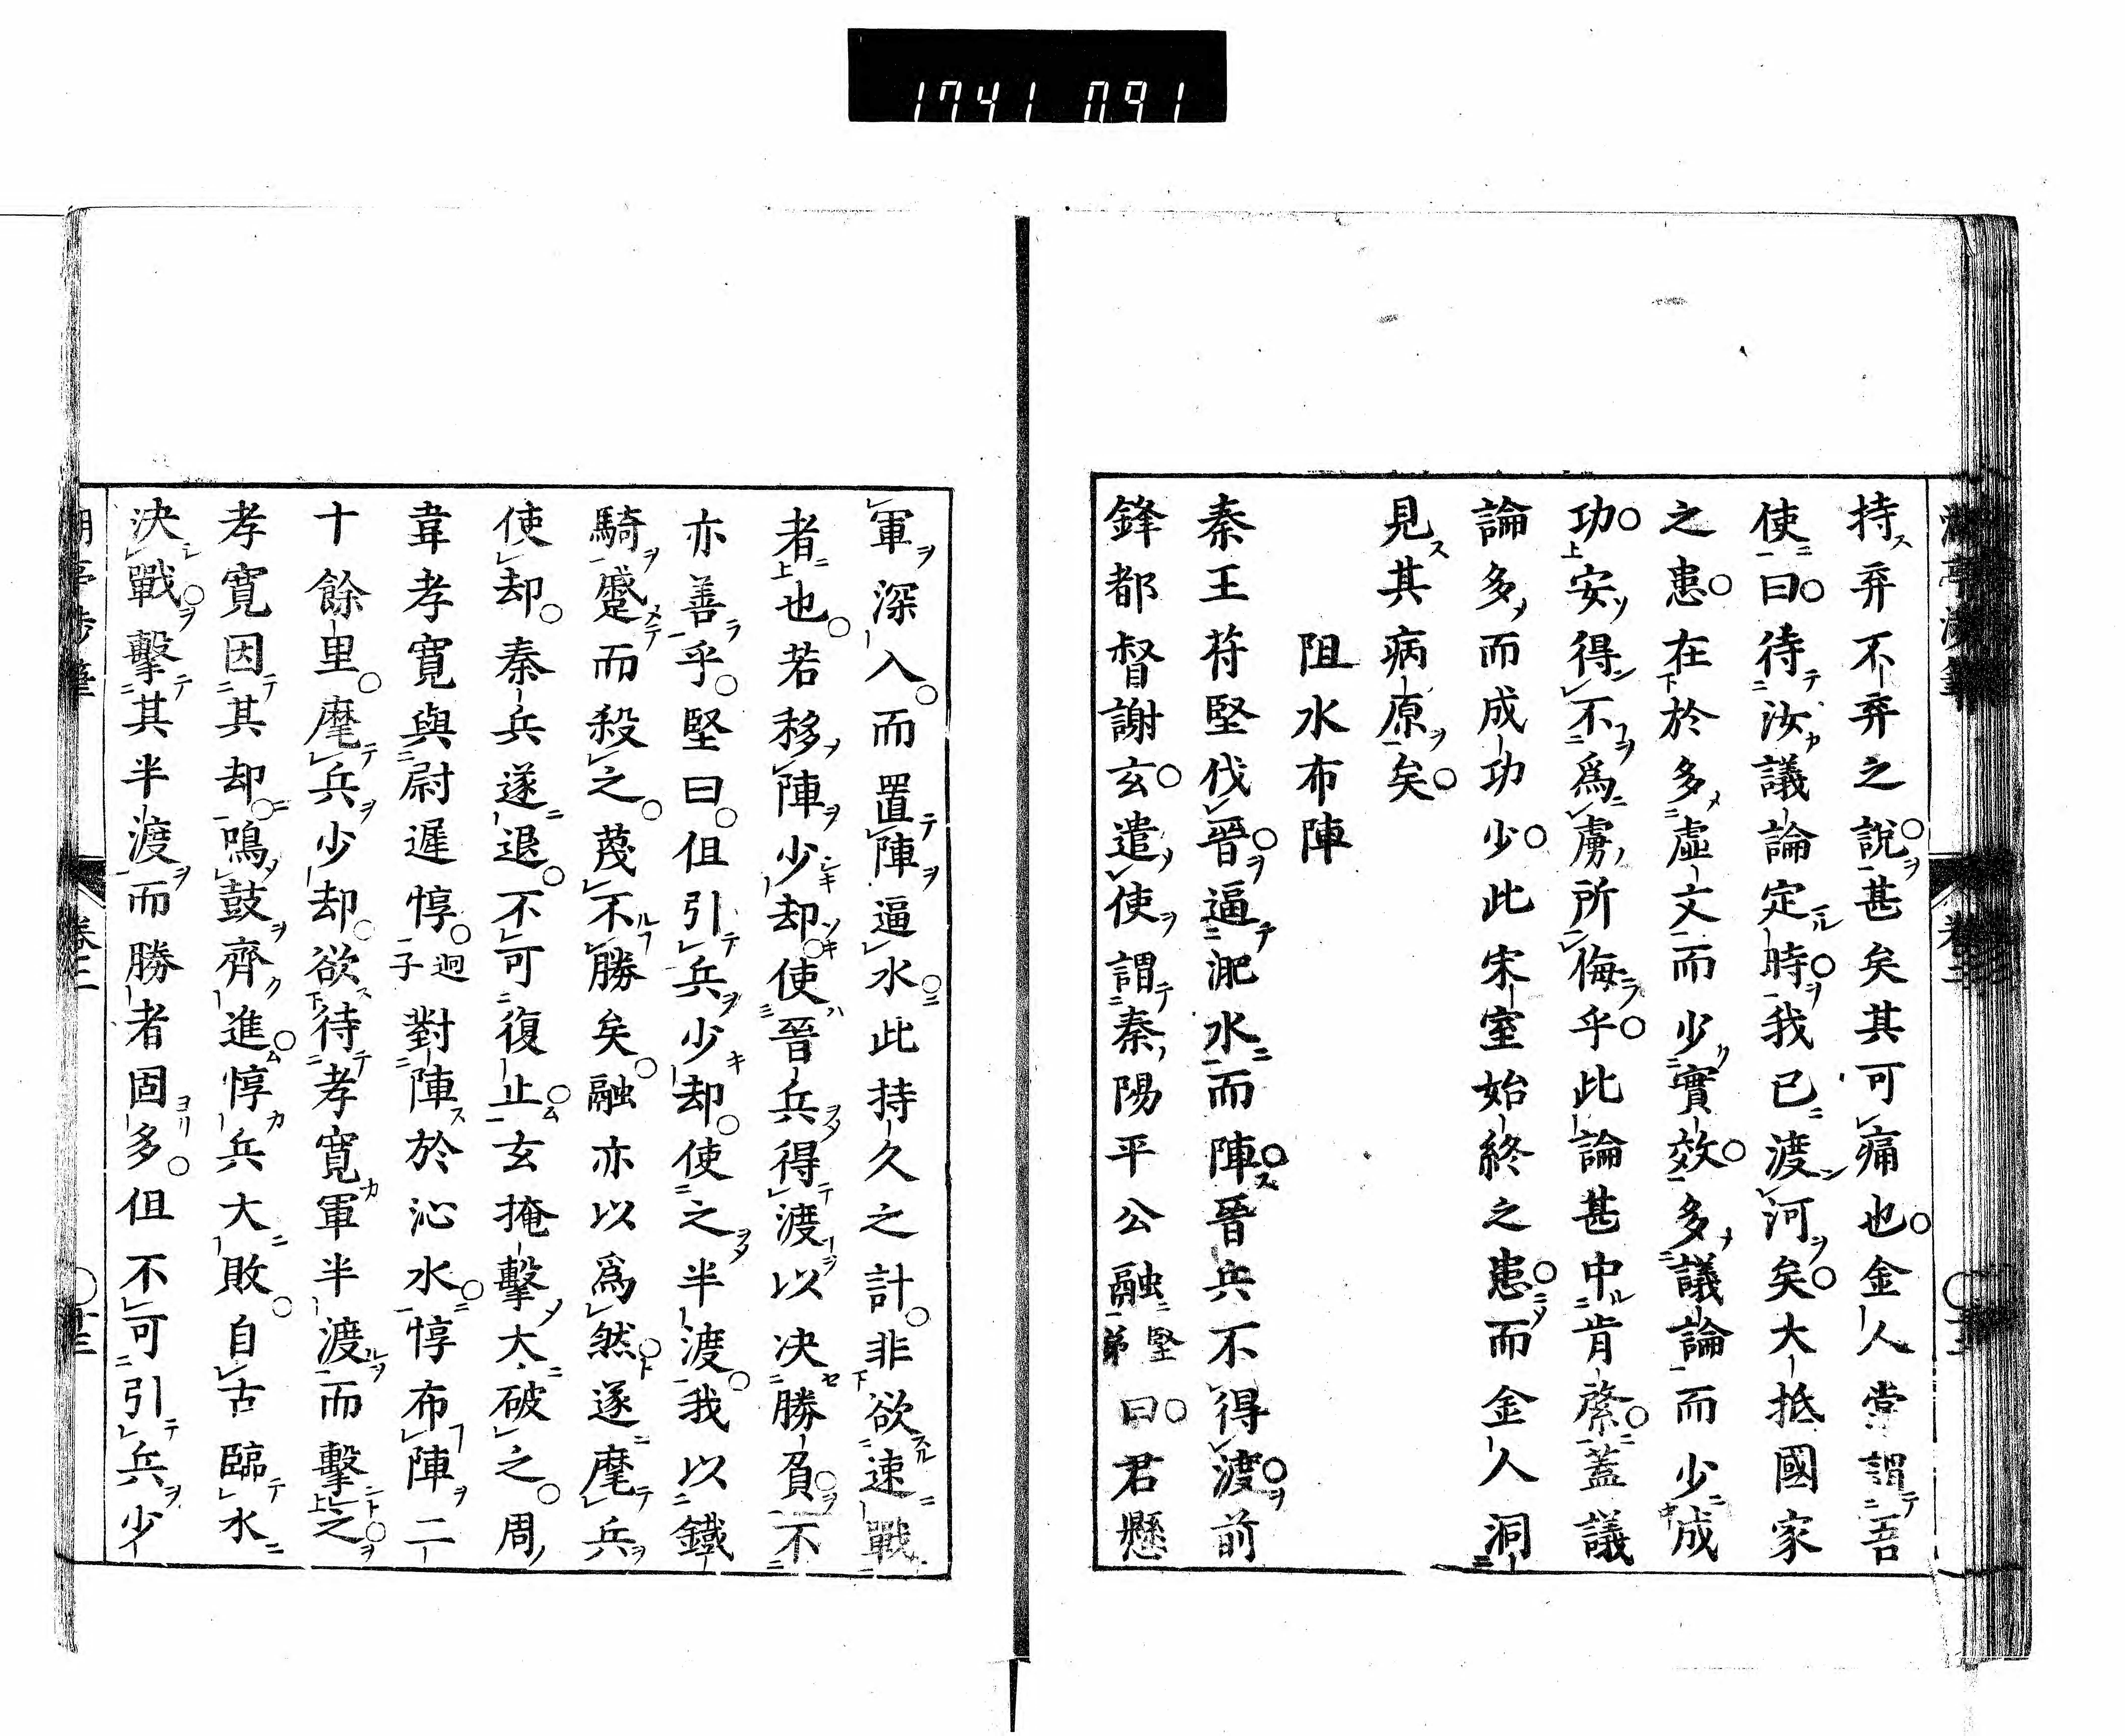 1741 091
持弃不弃之說甚矣其可痛也金人嘗謂吾
使曰待汝議論定時我已渡河矣大抵國家
之患在於多虛文而少實效多議論而少成
功安得不爲虜所侮乎此論甚中肯綮蓋議
論多而成功少此宋室始終之患而金人洞
見其病原矣
阻水布陣
秦王苻堅伐晉逼淝水而陣晉兵不得渡前
鋒都督謝玄遣使謂秦陽平公融堅弟曰君懸
軍深入而置陣逼水此持久之計非欲速戰
者也若移陣少却使晉兵得渡以决勝負不
亦善乎堅曰但引兵少却使之半渡我以鐵
騎蹙而殺之蔑不勝矣融亦以爲然遂麾兵
使却秦兵遂退不可復止玄掩擊大破之周
韋孝寬與尉遲惇迥子對陣於沁水惇布陣二
十餘里麾兵少却欲待孝寬軍半渡而擊之
孝寬因其却鳴鼓齊進惇兵大敗自古臨水
决戰擊其半渡而勝者固多但不可引兵少
卷三